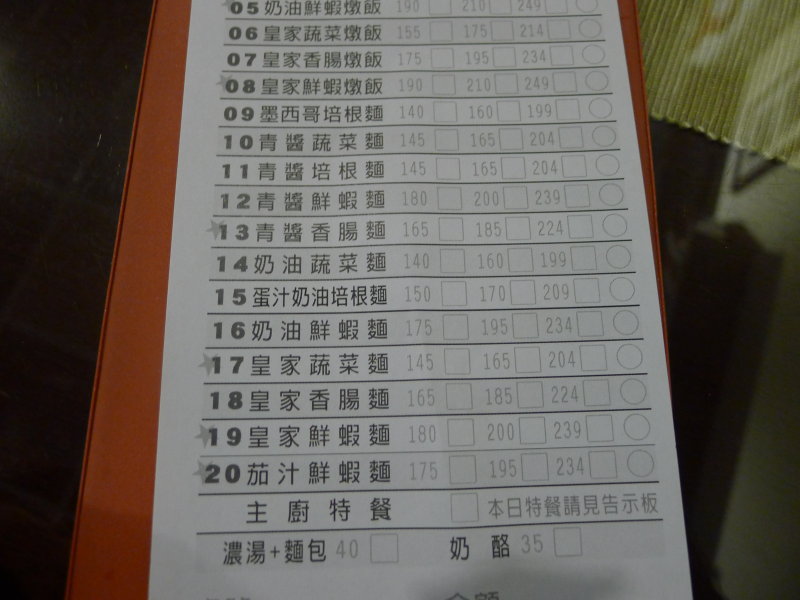 05奶油鮮蝦燉飯 190 210 249
06皇家蔬菜燉飯 155 175 214
07皇家香腸燉飯 175 195 234
08皇家鮮蝦燉飯 190 210 249
09墨西哥培根麵 140 160 199
10青醬蔬菜麵 145 165 204
11青醬培根麵 145 165 204
12青醬鮮蝦麵 180 200 239
13青醬香腸麵 165 185 224
14奶油蔬菜麵 140 160 199
15蛋汁奶油培根麵 150 170 209
16奶油鮮蝦麵 175 195 234
17皇家蔬菜麵 145 165 204
18皇家香腸麵 165 185 224
19皇家鮮蝦麵 180 200 239
20茄汁鮮蝦麵 175 195 234
主廚特餐 本日特餐請見告示板
濃湯+麵包 40 奶酪 35